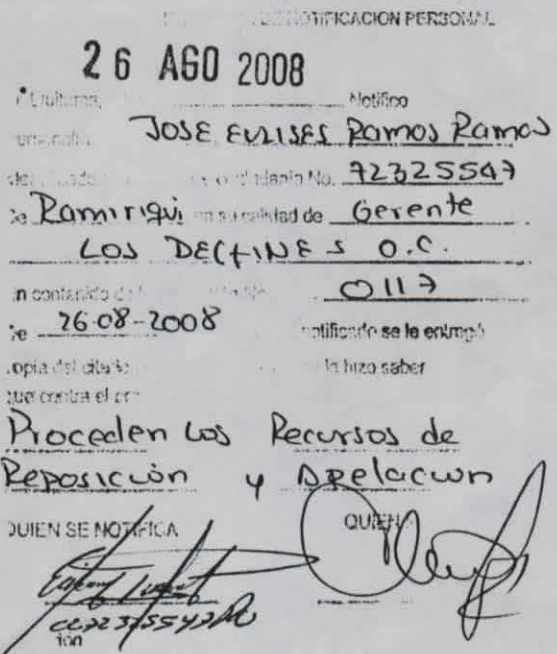 NOTIFICACION PERSONAL
26 AGO 2008
Notifico
JOSE EULISES Ramos Ramos
No. 72325547
de Ramiriqui en su calidad de Gerente
LOS DELFINES O.C.
n contenido de 0117
de 26-08-2008 notificado se le entregó
copia del citado le hizo saber
que contra el
Proceden los Recursos de
Reposicion y Apelacion
QUIEN SE NOTIFICA QUIEN